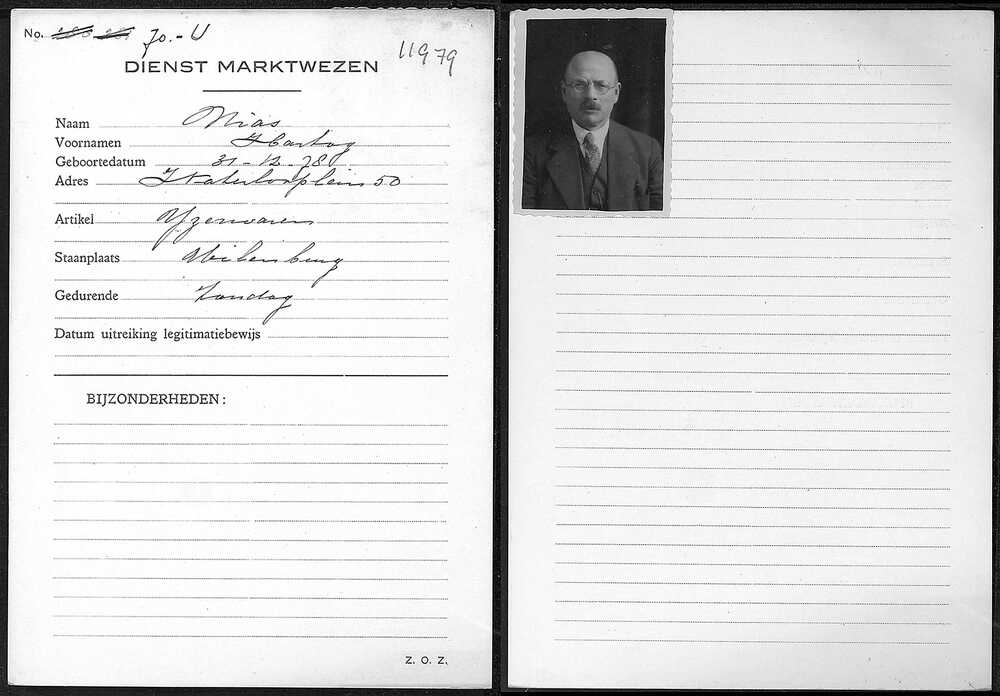 No. 70.-U
11979
DIENST MARKTWEZEN
Naam Nias
Voornamen Hartog
Geboortedatum 31-12-78
Adres Waterlooplein 50
Artikel Yzerwaren
Staanplaats Uilenburg
Gedurende Zondag
Datum uitreiking legitimatiebewijs
BIJZONDERHEDEN:
Z. O. Z.